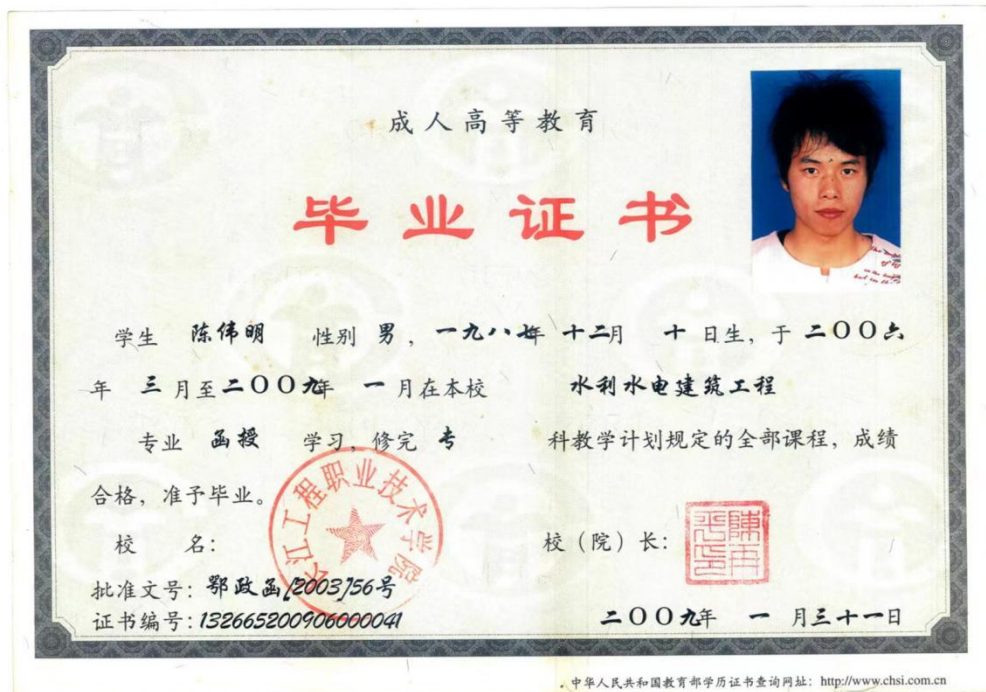 成人高等教育
毕业证书
学生 陈伟明 性别 男,一九八七年 十二月 十 日生,于 二〇〇六
年 三 月至 二〇〇九年 一 月在本校 水利水电建筑工程
专业 函授 学习,修完 专 科教学计划规定的全部课程,成绩
合格,准予毕业。
长江工程职业技术学院
校 名:
校(院)长:
批准文号:鄂政函[2003]56号
证书编号:132665200906000041
二〇〇九年 一 月三十一日
中华人民共和国教育部学历证书查询网址:http://www.chsi.com.cn